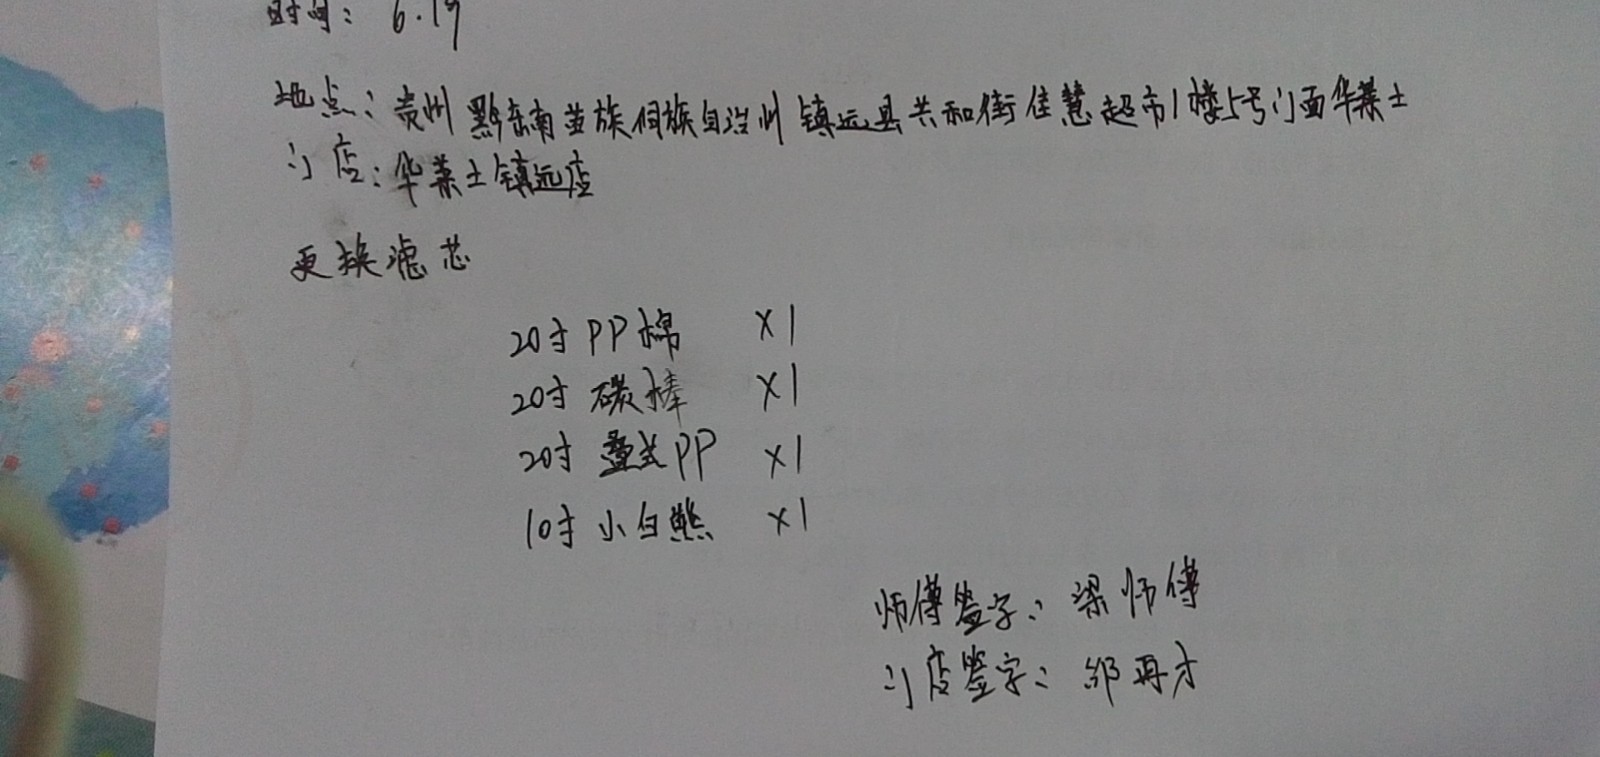 时间: 6.19
地点: 贵州黔东南苗族侗族自治州镇远县共和街佳慧超市1楼5号门面华莱士
门店: 华莱士镇远店
更换滤芯
20寸 PP棉 X1
20寸 碳棒 X1
20寸 叠式PP X1
10寸 小白熊 X1
师傅签字: 梁师傅
门店签字: 邹再才